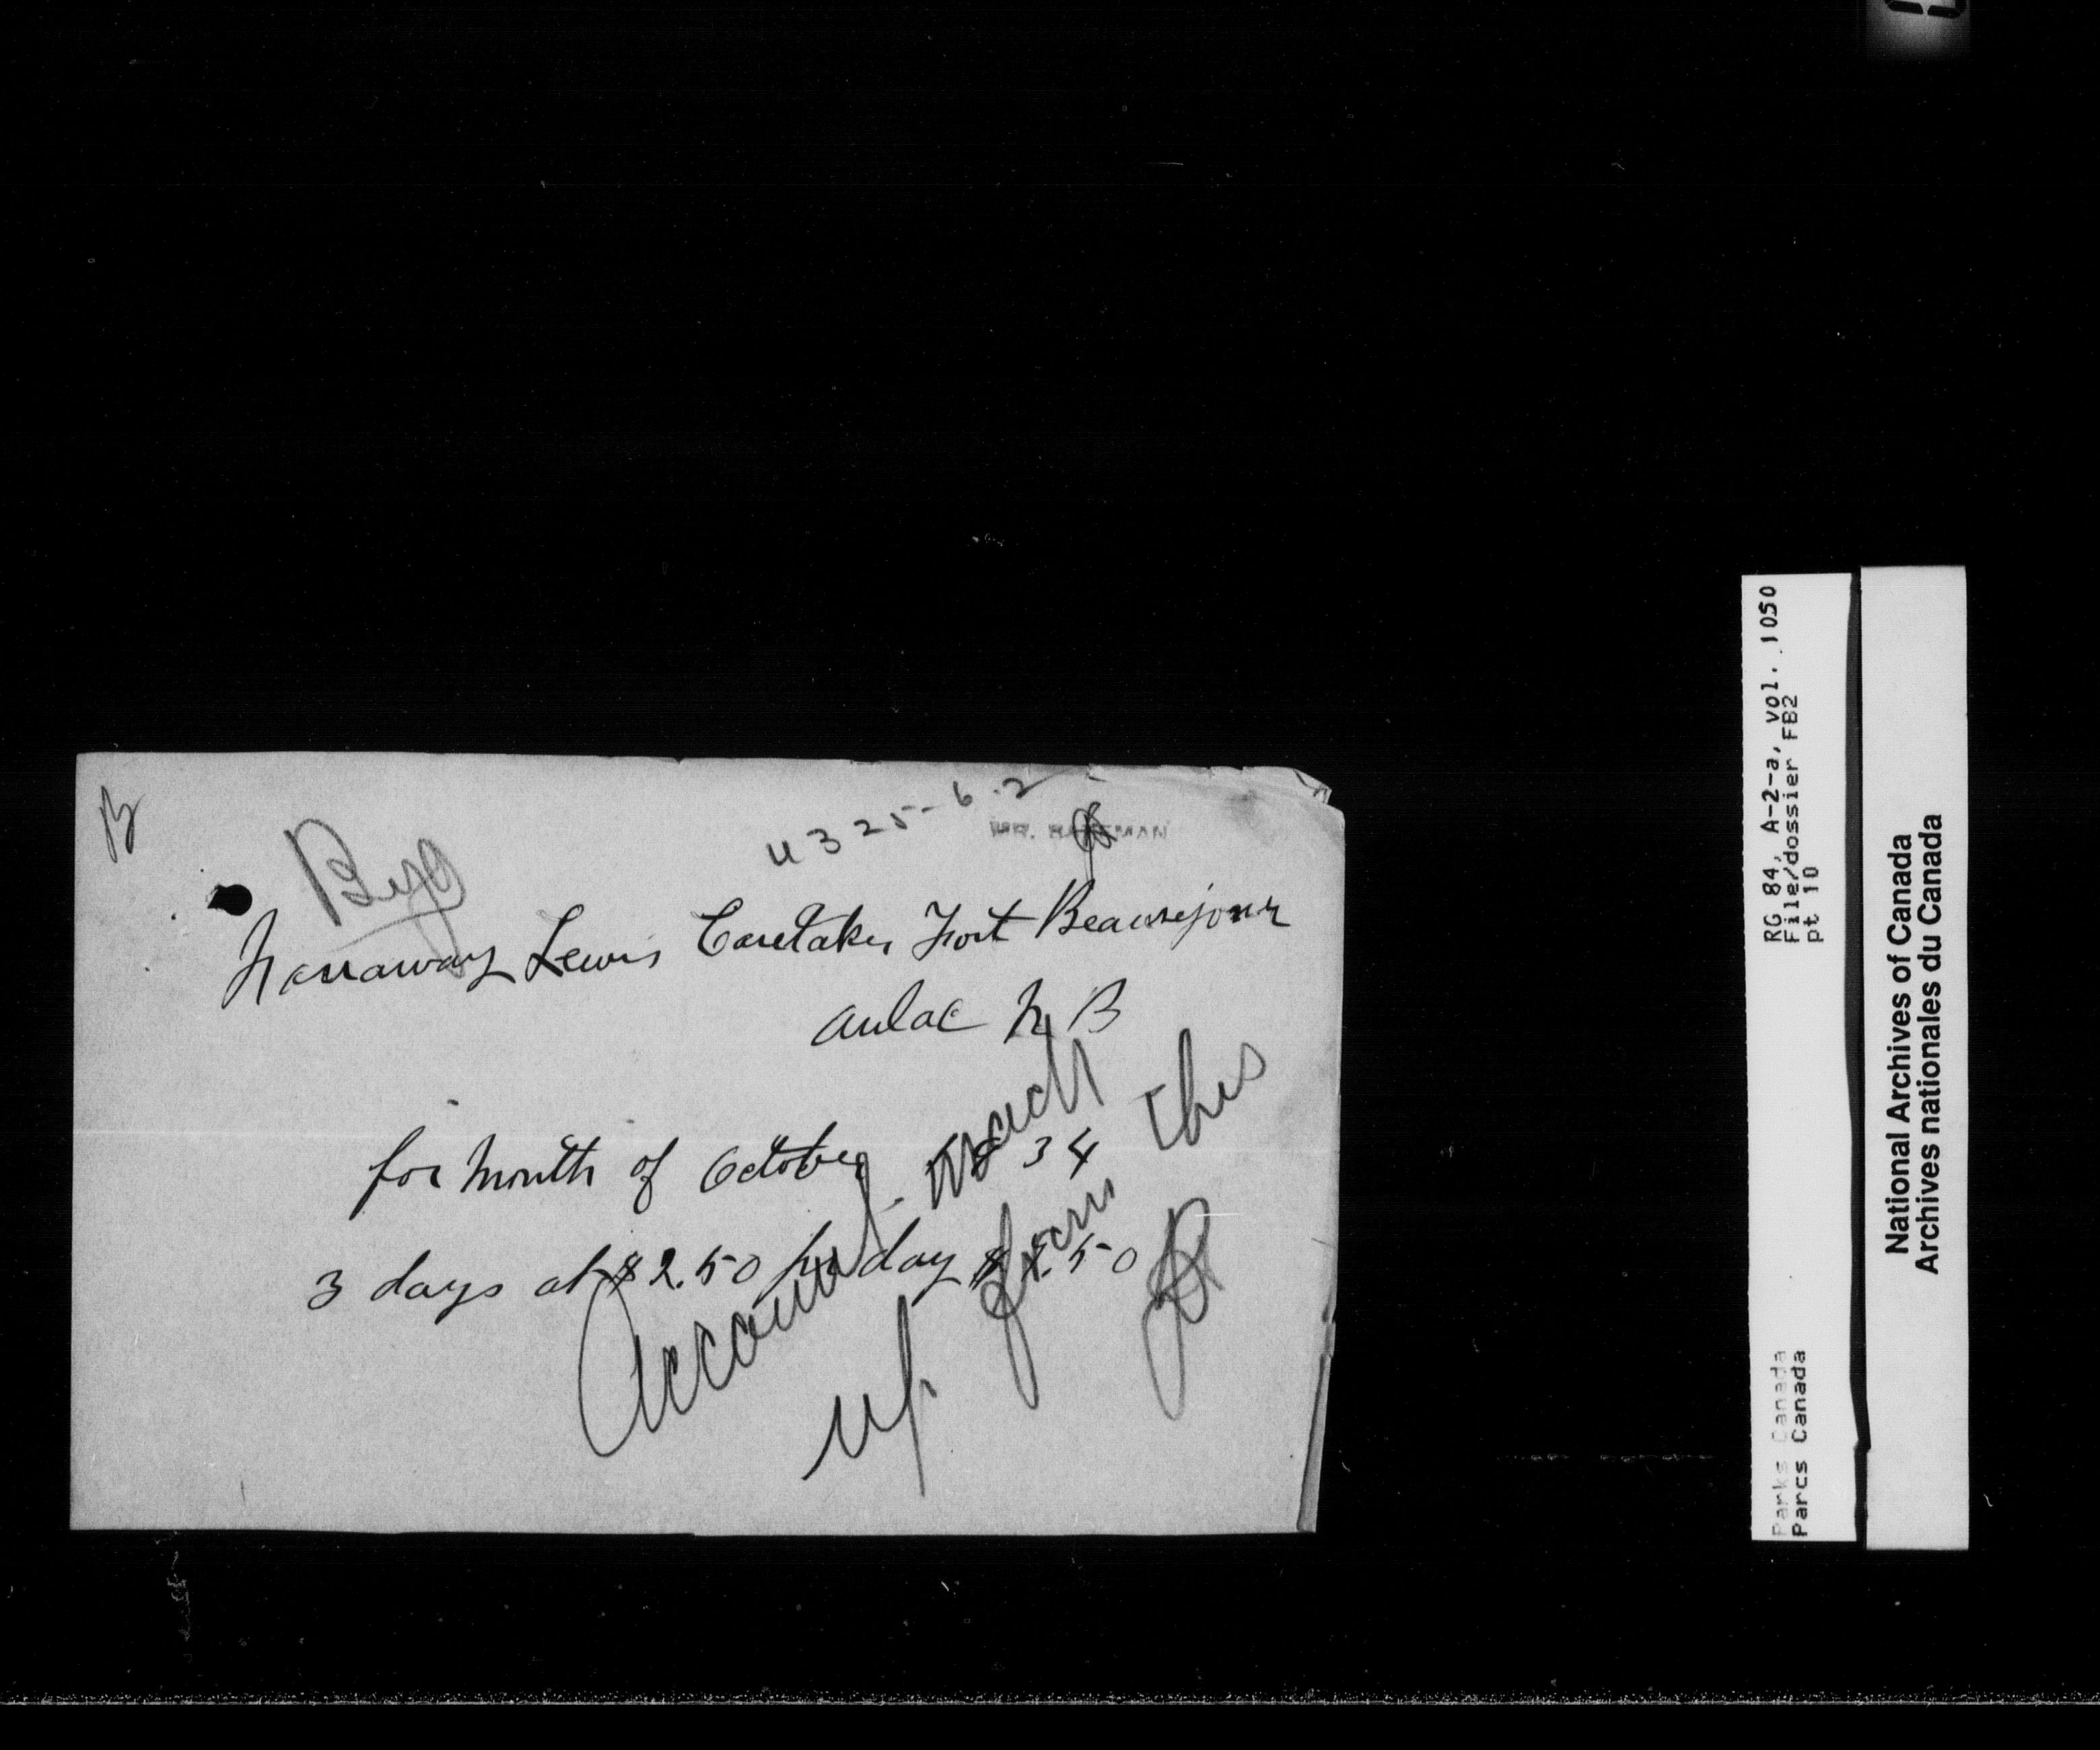 B
U325-6.2
MR.
Narraway Lewis Caretaker Fort Beausejour
Aulac N B
for Month of October 34
3 days at $2.50 per day $7.50
Account made
up from this
RG 84, A-2-a, vol. 1050
File/dossier FB2
pt 10
Parks Canada
Parcs Canada
National Archives of Canada
Archives nationales du Canada